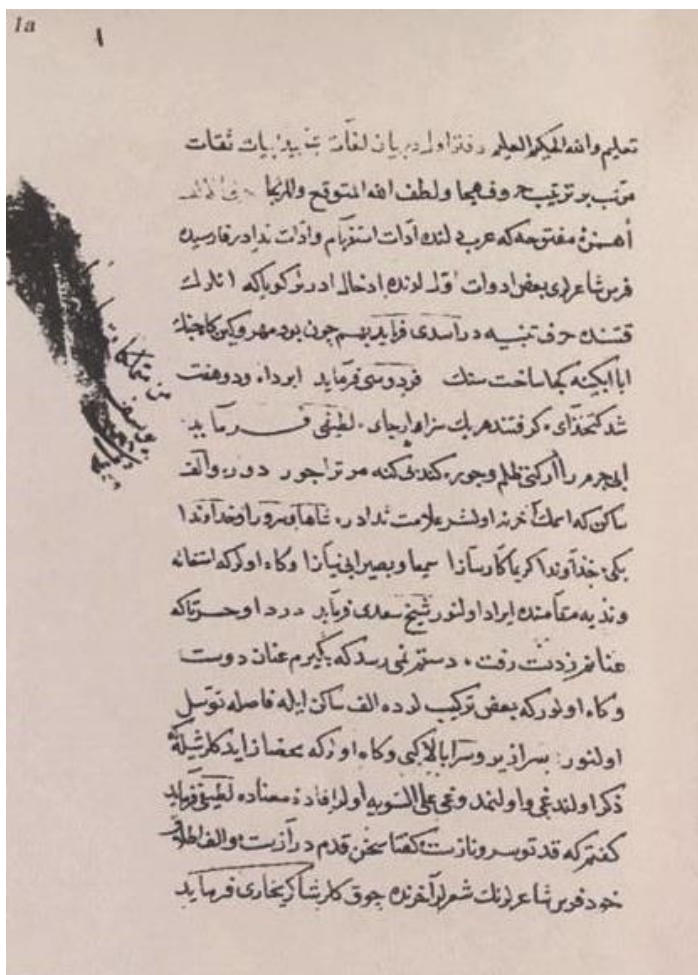 1a
١
تعليم والله الحكيم العليم دفتر اول در بيان لغات
مرتب بر ترتيب حروف هجا ولطف الله المتوقع والمرتجا
همزۀ مفتوحه كه عربى لنده ادات استفهام وادات ندادر فارسيده
فرس شاعرلرى بعض ادوات اولنده ادخال ادرلر كوياكه انلرك
قتنده حرف تنبيه در اسدى فرمايد بهم چون بود مهر وكين
ابا ابكينه كجا ساخت سنك فردوسى فرمايد ابر داه ودو هفت
شد كدخداى كرفتند هر يك سزاوار جاى لطيفى فرمايد
ابى جرم را اركنى ظلم وجور كند بى كنه مر ترا جور دور والف
ساكن كه اسمك آخرنده اولنسه علامت ندادر شاها وسرورا وخداوندا
بكى خداوندا كريما كارسازا سميعا وبصيرا بى نيازا وكاه اولوركه استغاثه
وندبه مقامنده ايراد اولنور شيخ سعدى فرمايد دردا وحسرتا كه
عنانم ز دست رفت دستم نمى رسد كه بكيرم عنان دوست
وكاه اولوركه بعض تركيب لرده الف ساكن ايله فاصله توسل
اولنور سرازير وسرابالا كبى وكاه اولوركه محضا زايد كلر شيله كه
ذكر اولندغى واولنمدوغى على السويه اولر افادۀ معناده لطيفى فرمايد
كفتم كه قد تو سرو نازست كفتا سخن قدم درازست والف اطلاق
خود فرس شاعرلرنك شعرلر آخرنده چوق كلر شاكر بخارى فرمايد
من
يوسف